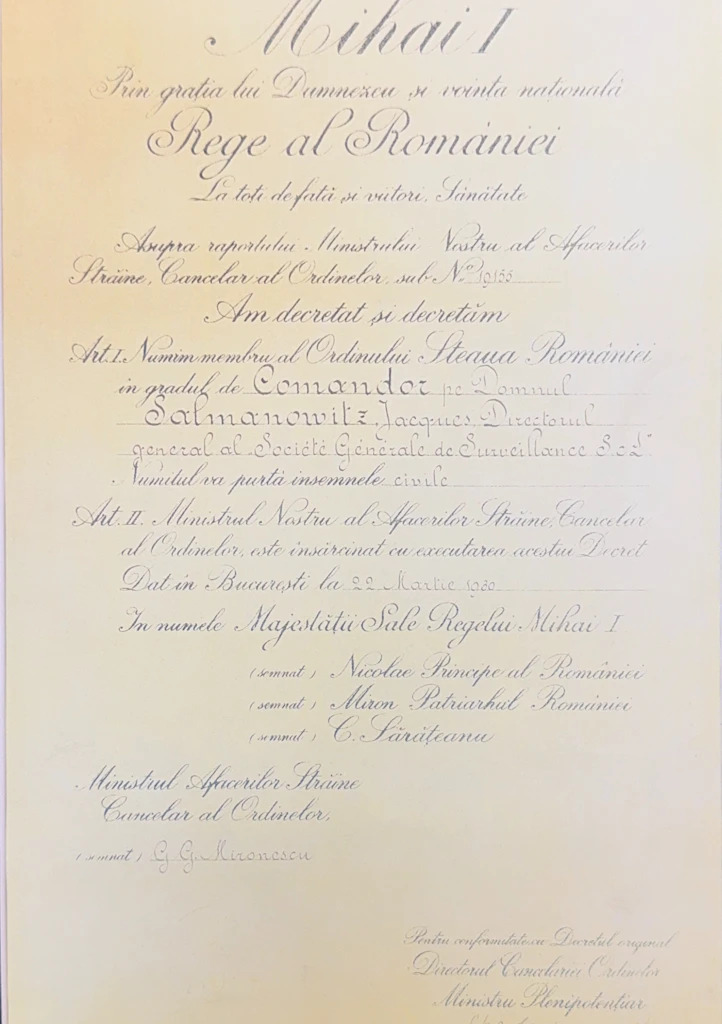 Mihai I
Prin grația lui Dumnezeu și voința națională
Rege al României
La toți de față și viitori, Sănătate
Asupra raportului Ministrului Nostru al Afacerilor
Străine, Cancelar al Ordinelor, sub No. 10155
Am decretat și decretăm
Art. I. Numim membru al Ordinului Steaua României
in gradul de Comandor pe Domnul
Salmanowitz, Jacques, Directorul
general al "Société Générale de Surveillance S.c.L"
Numitul va purtă insemnele civile
Art. II. Ministrul Nostru al Afacerilor Străine, Cancelar
al Ordinelor, este însărcinat cu executarea acestui Decret
Dat in București la 22 Martie 1930
In numele Majestății Sale Regelui Mihai I
(semnat) Nicolae Principe al României
(semnat) Miron Patriarhul României
(semnat) C. Sărățeanu
Ministrul Afacerilor Străine
Cancelar al Ordinelor,
(semnat) G. G. Mironescu
Pentru conformitate cu Decretul original
Directorul Cancelariei Ordinelor
Ministru Plenipotențiar